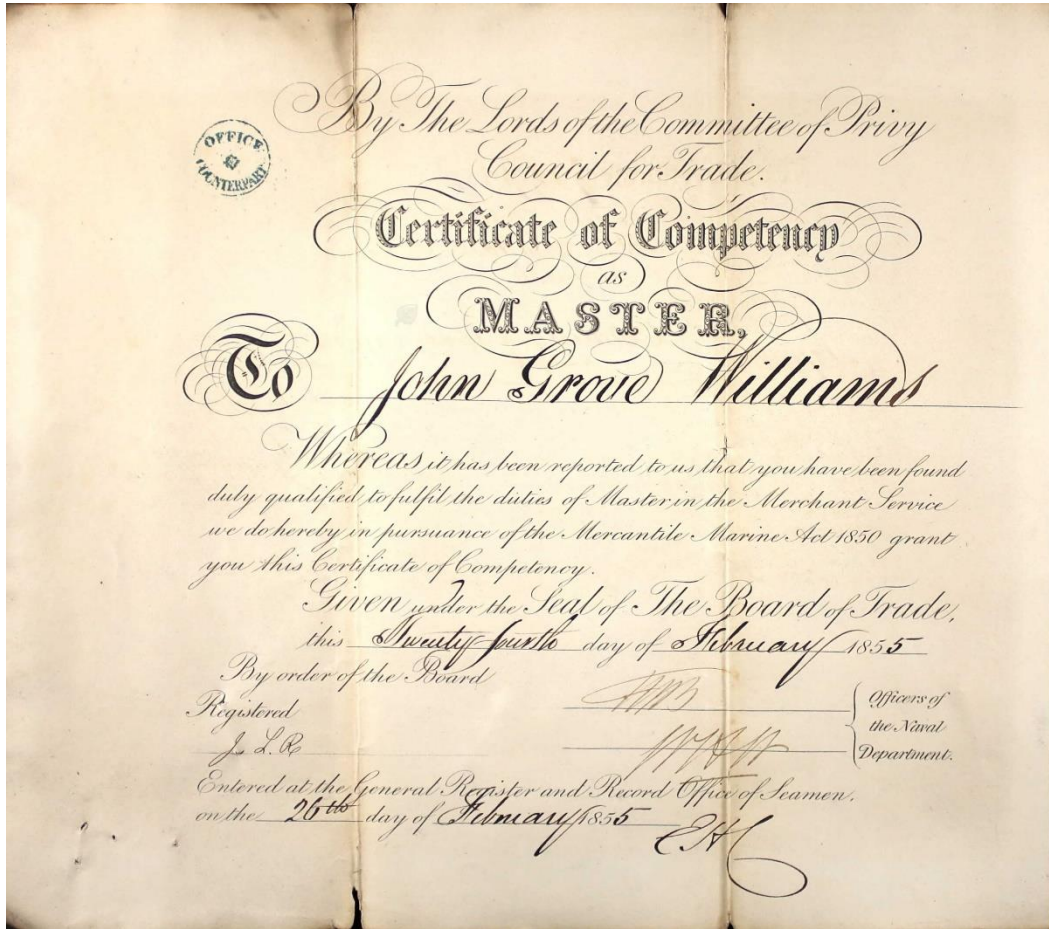 OFFICE
COUNTERPART
By The Lords of the Committee of Privy
Council for Trade.
Certificate of Competency
as
MASTER,
To John Grove Williams
Whereas it has been reported to us that you have been found
duly qualified to fulfil the duties of Master in the Merchant Service
we do hereby in pursuance of the Mercantile Marine Act 1850 grant
you this Certificate of Competency.
Given under the Seal of The Board of Trade,
this Twenty fourth day of February 1855
By order of the Board
Registered
J. L. R
Officers of
the Naval
Department.
Entered at the General Register and Record Office of Seamen.
on the 26th day of February 1855